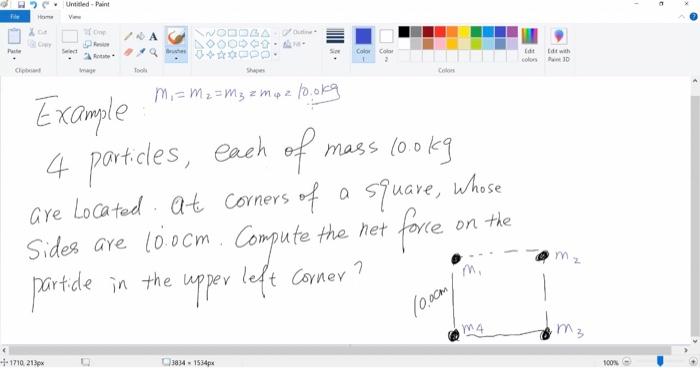 Untitled - Paint
File Home View
Paste Cut Copy Select Crop Resize Rotate Brushes Outline Fill Size Color 1 Color 2 Edit colors Edit with Paint 3D
Clipboard Image Tools Shapes Colors
m₁ = m₂ = m₃ = m₄ = 10.0kg
Example :
4 particles, each of mass 10.0kg
are Located. at corners of a square, whose
Sides are 10.0cm. Compute the net force on the
particle in the upper left corner?
m₁ m₂
10.0cm
m4 m₃
1710, 213px 3834 × 1534px 100%